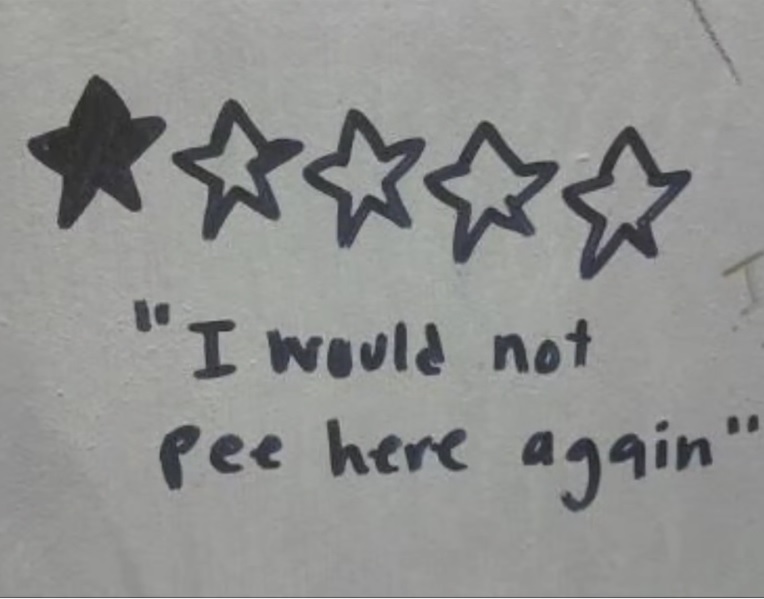 "I would not
pee here again"